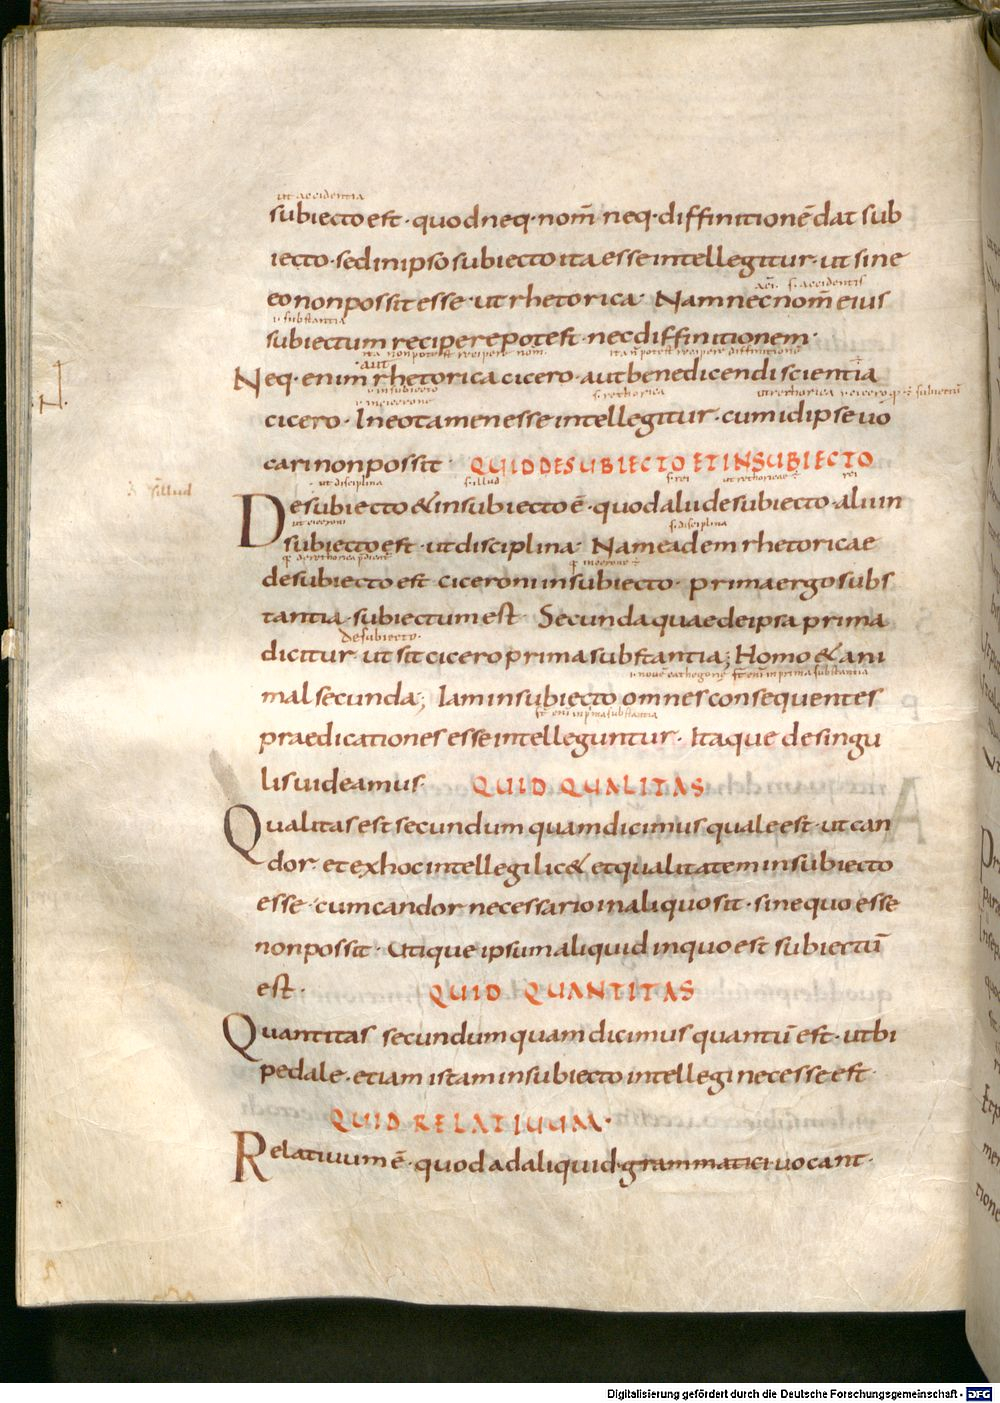 ut accidentia
subiecto est · quod neq · nom̄ neq · diffinitionē dat sub
iecto · sed in ipso subiecto ita esse intellegitur · ut sine
eo non possit esse · ut rhetorica · Nam nec nom̄ eius
subiectum recipere potest · nec diffinitionem ·
Neq · enim rhetorica cicero · aut benedicendi scientia
cicero · In eo tamen esse intellegitur · cum id ipse uo
cari non possit · QUID DE SUBIECTO ET IN SUBIECTO
De subiecto & in subiecto ē · quod aliu de subiecto · alii in
subiecto est · ut disciplina · Nam eadem rhetoricae
de subiecto est · ciceroni in subiecto · prima ergo subs
tantia · subiectum est · Secunda quae de ipsa prima
de subiecto ·
dicitur · ut sit cicero prima substantia; Homo & ani
mal secunda; Iam in subiecto omnes consequentes
praedicationes esse intelleguntur · Itaque de singu
lis uideamus · QUID QUALITAS
Qualitas est secundum quam dicimus quale est · ut can
dor · et ex hoc intellegi lic& et qualitatem in subiecto
esse · cum candor necessario in aliquo sit · sine quo esse
non possit · Utique ipsum aliquid in quo est subiectū
est · QUID QUANTITAS
Quantitas secundum quam dicimus quantū est · ut bi
pedale · etiam istam in subiecto intellegi necesse est ·
QUID RELATIUUM ·
Relatiuum ē · quod ad aliquid · grammatici uocant ·
Digitalisierung gefördert durch die Deutsche Forschungsgemeinschaft - DFG